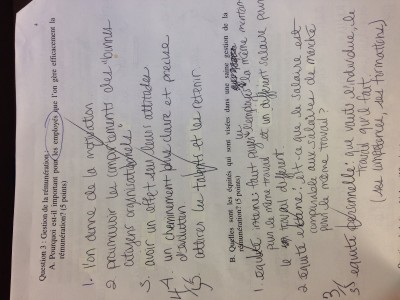 Question 3 : Gestion de la rémunération
A. Pourquoi est-il important pour les employés que l'on gère efficacement la
rémunération? (5 points)
1. l'on donne de la motivation
2 promouvoir les comportements des "bonnes
citoyens organisationnels"
3. avoir un effet sur leur attitudes
4. un cheminement plus claire et précise
d'évolution
5. attirer les talents et les retenir
4/5
B. Quelles sont les équités qui sont visées dans une saine gestion de la
rémunération? (5 points)
1. Equité interne: faut payer les employés la même montant
pour le même travail et un différent salaire pour
le travail différent
2 équité externe: est-ce que le salaire est
comparable aux salaires de marché
pour le même travail?
3 équité personnelle: que vaut l'individue, le
travail qu'il fait
(ses compétences, ses formations)
3/5